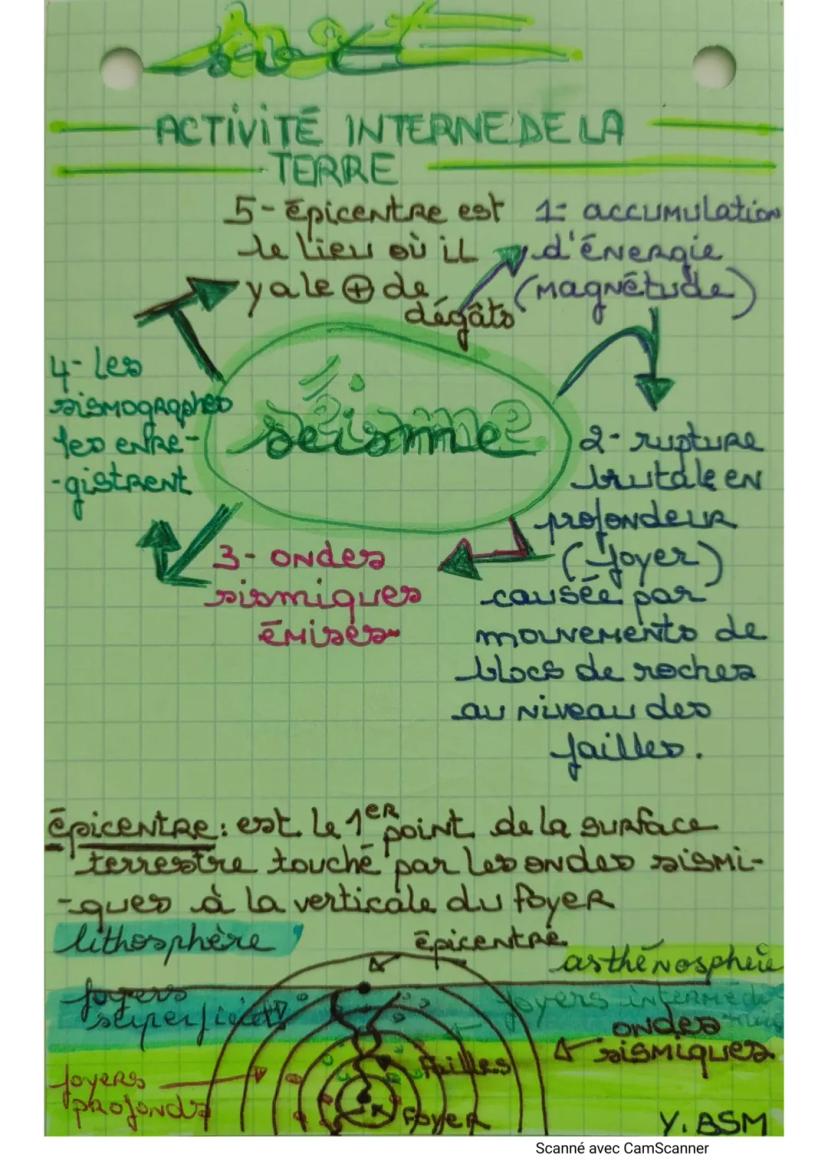 svt
ACTIVITÉ INTERNE DE LA
TERRE
5- épicentre est
le lieu où il
y a le ⊕ de
dégâts
1- accumulation
d'énergie
(magnétude)
4- les
sismographes
les enre-
-gistrent
séisme
2- rupture
brutale en
profondeur
(foyer)
causée par
mouvements de
blocs de roches
au niveau des
failles.
3- ondes
sismiques
émises
épicentre: est le 1er point de la surface
terrestre touché par les ondes sismi-
-ques à la verticale du foyer
lithosphère
épicentre
asthénosphère
foyers
superficiels
foyers intermédiaires
ondes
sismiques
failles
foyers
profonds
foyer
Y. BSM
Scanné avec CamScanner